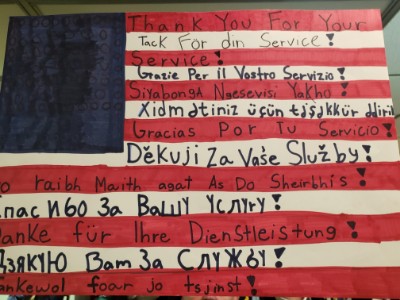 Thank You For Your
Tack För din Service!
Service!
Grazie Per il Vostro Servizio!
Siyabonga Ngesevisi Yakho!
Xidmətiniz üçün təşəkkür
Gracias Por Tu Servicio!
Děkuji Za Vaše Služby!
raibh Maith agat As Do Sheirbhís!
пасибо За Вашу Услугу!
anke für Ihre Dienstleistung!
Дзякую Вам За Службу!
ankewol foar jo tsjinst!